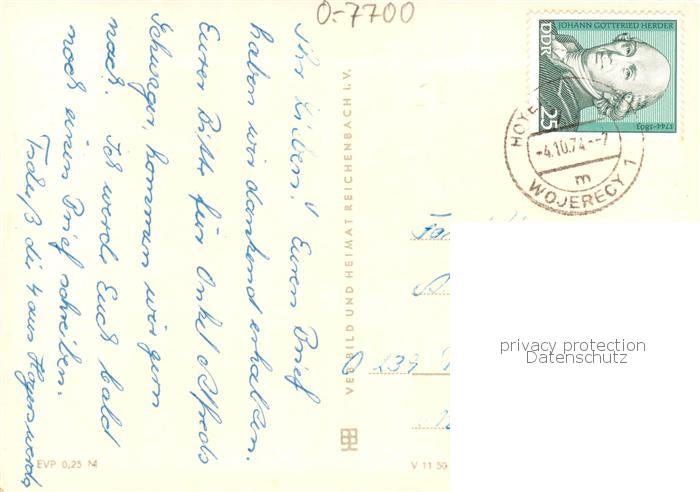 O-7700
JOHANN GOTTFRIED HERDER
DDR
25
1744-1803
HOYE
-4.10.74--7
m
WOJERECY 1
Ihr Lieben, Euren Brief
haben wir dankend erhalten.
Eurer Bitte für Onkel Alfreds
Schwager, kommen wir gern
nach. Ich werde Euch bald
noch einen Brief schreiben.
Tschüß die 4 aus Hoyerswerda
VEB BILD UND HEIMAT REICHENBACH I. V.
EVP 0,25 M
V 11 50
privacy protection
Datenschutz